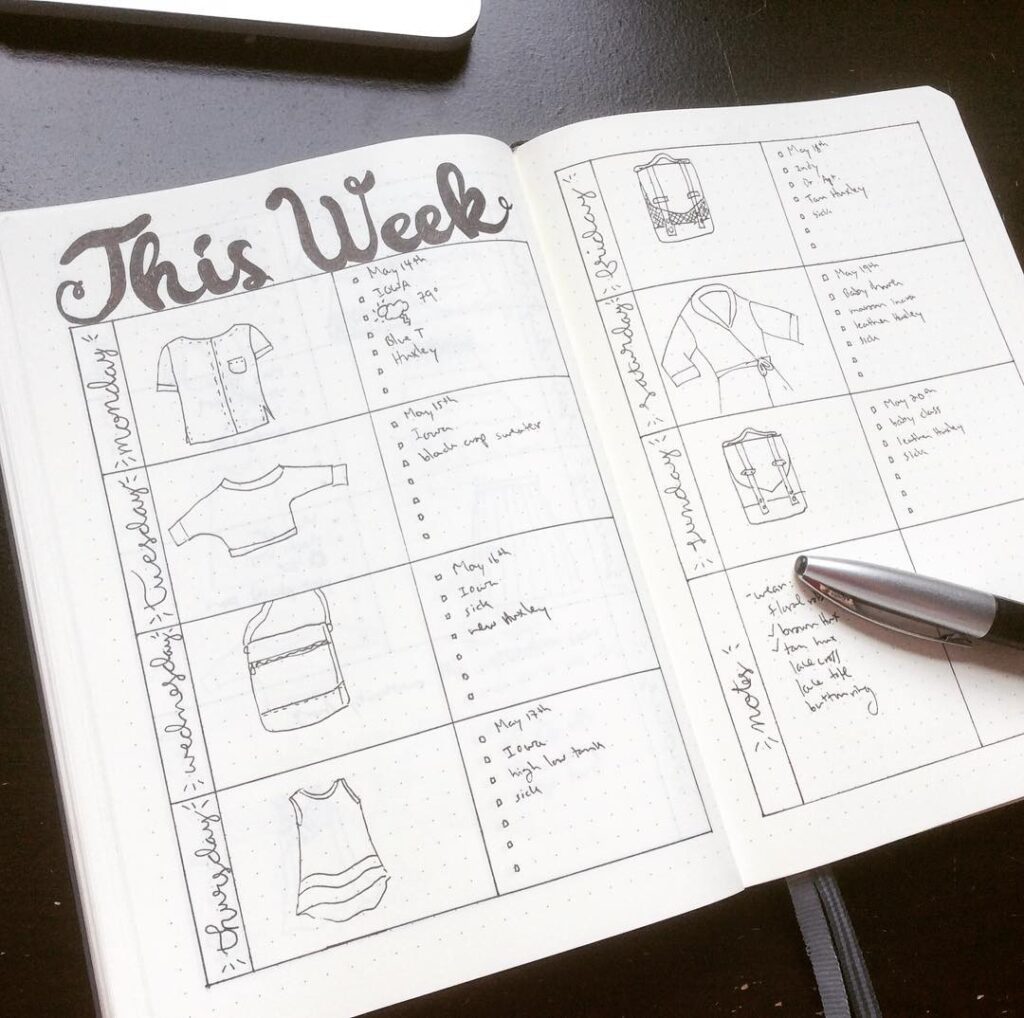 This Week
monday
May 14th
IOWA
79°
Olive T
Huxley
tuesday
May 15th
Iowa
black crop sweater
wednesday
May 16th
Iowa
sick
new Huxley
thursday
May 17th
Iowa
high low tank
sick
friday
May 18th
Indy
Dr. Apt.
Tan Huxley
sick
saturday
May 19th
Baby
maroon
leather Huxley
sick
sunday
May 20th
baby class
leather Huxley
sick
notes
-wear:
floral
✓ brown
✓ tan
lace
lace
button